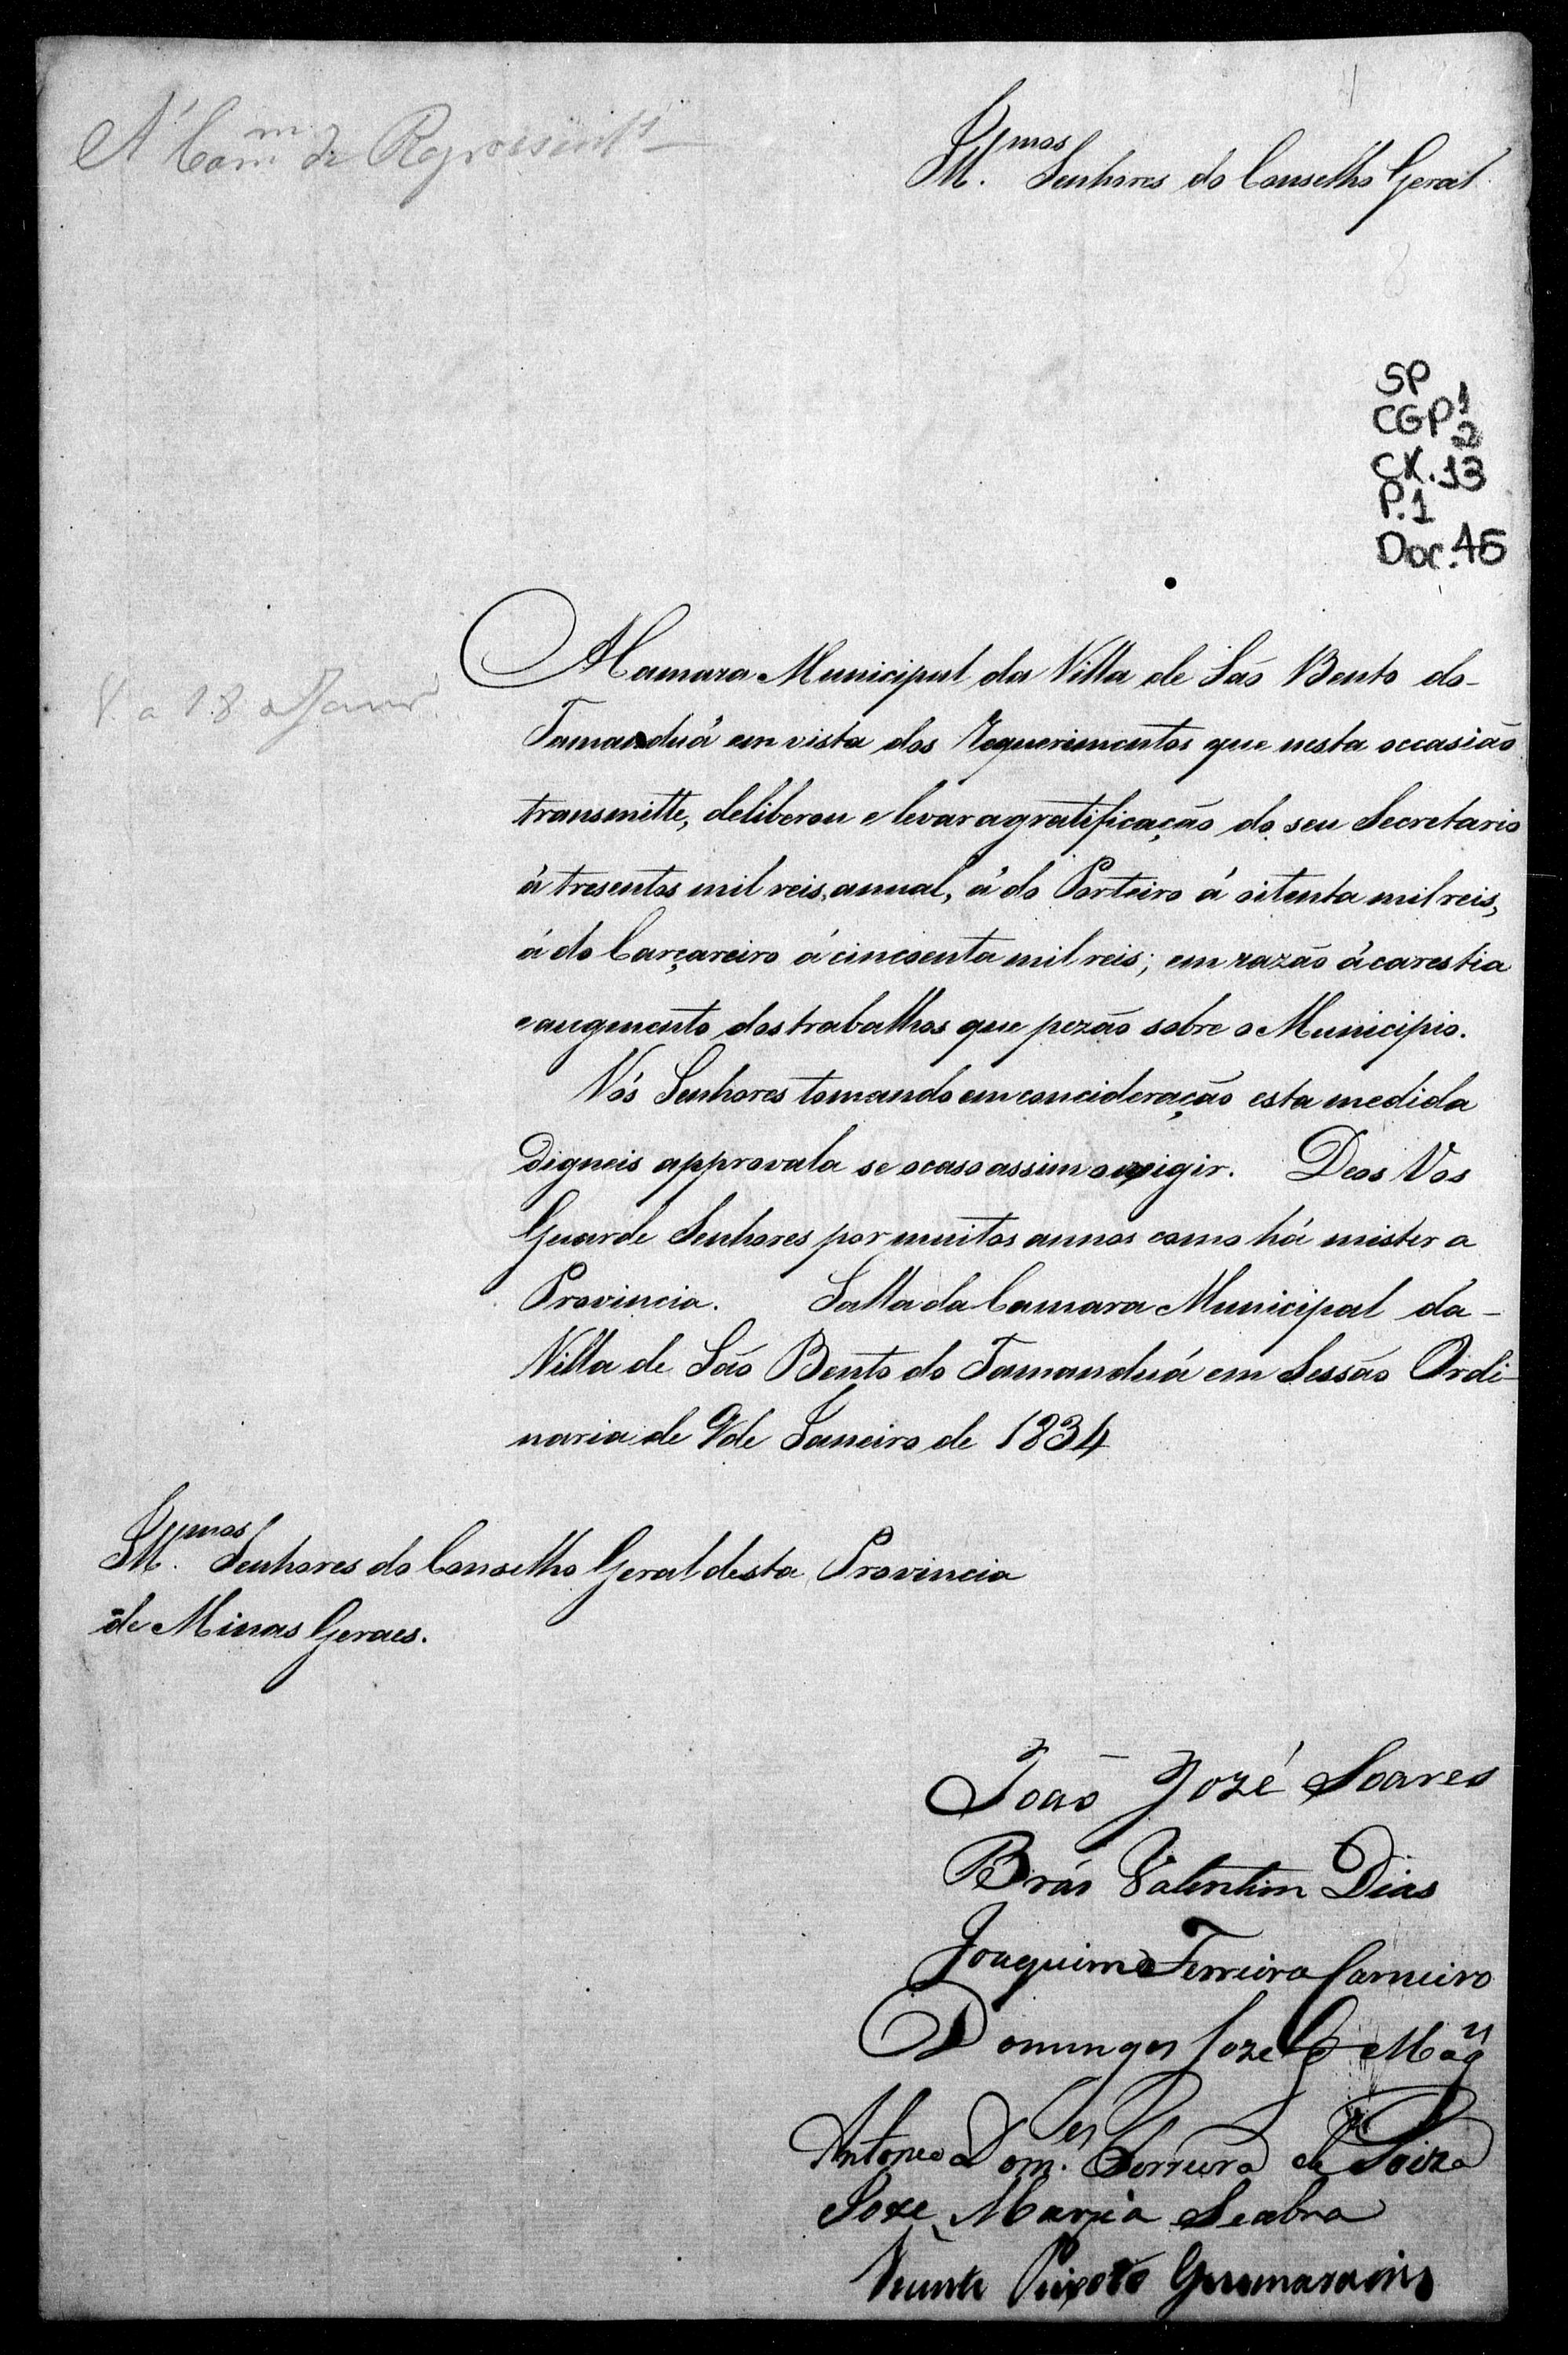 A' Com.m de Represent.s
Ill.mos Senhores do Conselho Geral
SP
CGP 1
2
CX. 13
P. 1
Doc. 45
A Camara Municipal da Villa de São Bento do
Tamanduá em vista dos Requerimentos que nesta occasião
transmitte, deliberou elevar a gratificação do seu Secretario
á tresentos mil reis, annual, á do Porteiro á oitenta mil reis,
á do Carçareiro á cincoenta mil reis; em razão á carestia
e augmento dos trabalhos que pezão sobre o Municipio.
Vós Senhores tomando em concideração esta medida
digneis approvala se o caso assim o exigir. Deos Vos
Guarde Senhores por muitos annos como há mister a
Provincia. Salla da Camara Municipal da
Villa de São Bento do Tamanduá em Sessão Ordi-
naria de 9 de Janeiro de 1834
Ill.mos Senhores do Conselho Geral desta Provincia
de Minas Geraes.
V. a 18 de Janr.o
João Jozé Soares
Brás Valentim Dias
Joaquim Ferreira Carneiro
Domingos Joze
Antonio Dom.es Ferreira de Soiza
Joze Maria Seabra
Vicente Peixoto Guimaraens